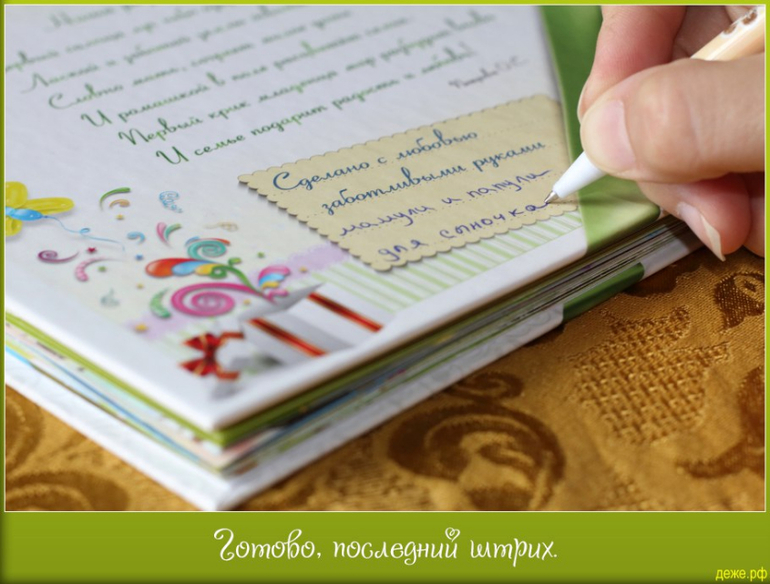 Ласкай и
Словно мать,
И ромашкой в поле
Первый крик младенца мир разбудит вновь
И семье подарит радость и любовь!
Сделано с любовью
заботливыми руками
мамули и папули
для сыночка
Готово, последний штрих.
деже.рф